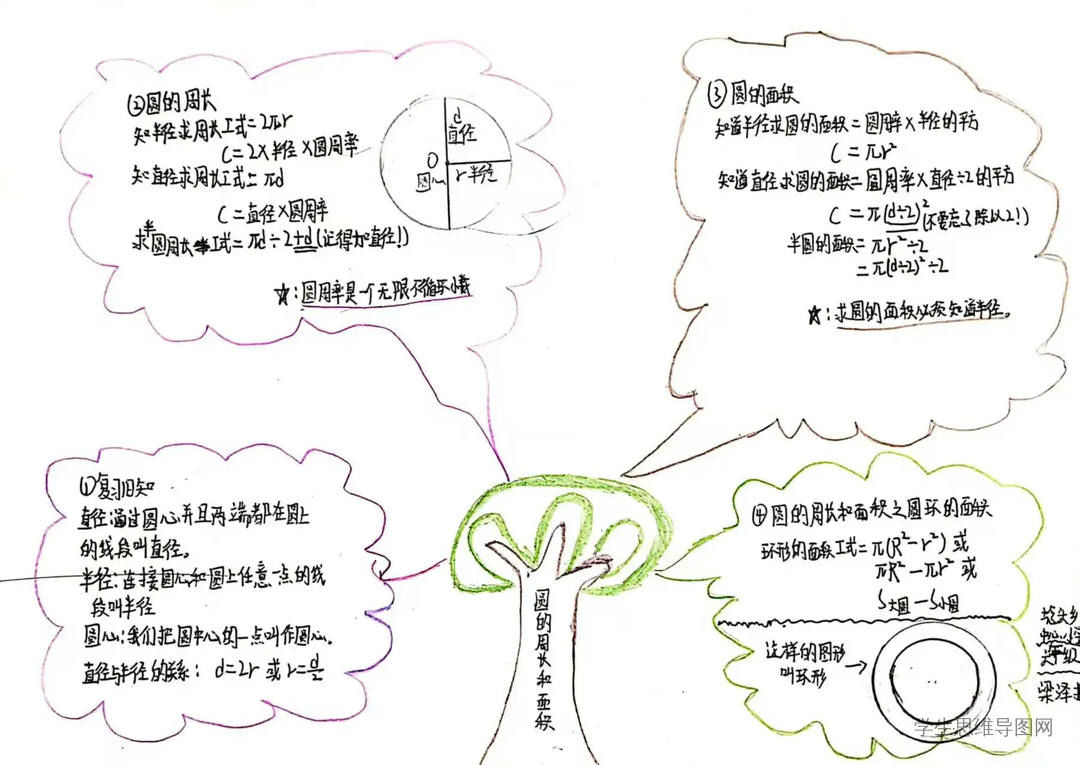 ②圆的周长
知半径求周长工式=2πr
C=2×半径×圆周率
知直径求周长工式=πd
C=直径×圆周率
求半圆周长工式=πd÷2+d(记得加直径!)
☆:圆周率是一个无限不循环小数
d
直径
O
圆心
r半径
③圆的面积
知道半径求圆的面积=圆周率×半径的平方
C=πr²
知道直径求圆的面积=圆周率×直径÷2的平方
C=π(d÷2)²(不要忘了除以2!)
半圆的面积=πr²÷2
=π(d÷2)²÷2
☆:求圆的面积必须知道半径。
①复习旧知
直径:通过圆心并且两端都在圆上
的线段叫直径。
半径:连接圆心和圆上任意一点的线
段叫半径
圆心:我们把圆中心的一点叫作圆心。
直径与半径的关系: d=2r 或 r=d/2
圆的周长和面积
④圆的周长和面积之圆环的面积
环形的面积工式=π(R²-r²)或
πR²-πr²或
S大圆-S小圆
这样的图形
叫环形
梁泽
学生思维导图网